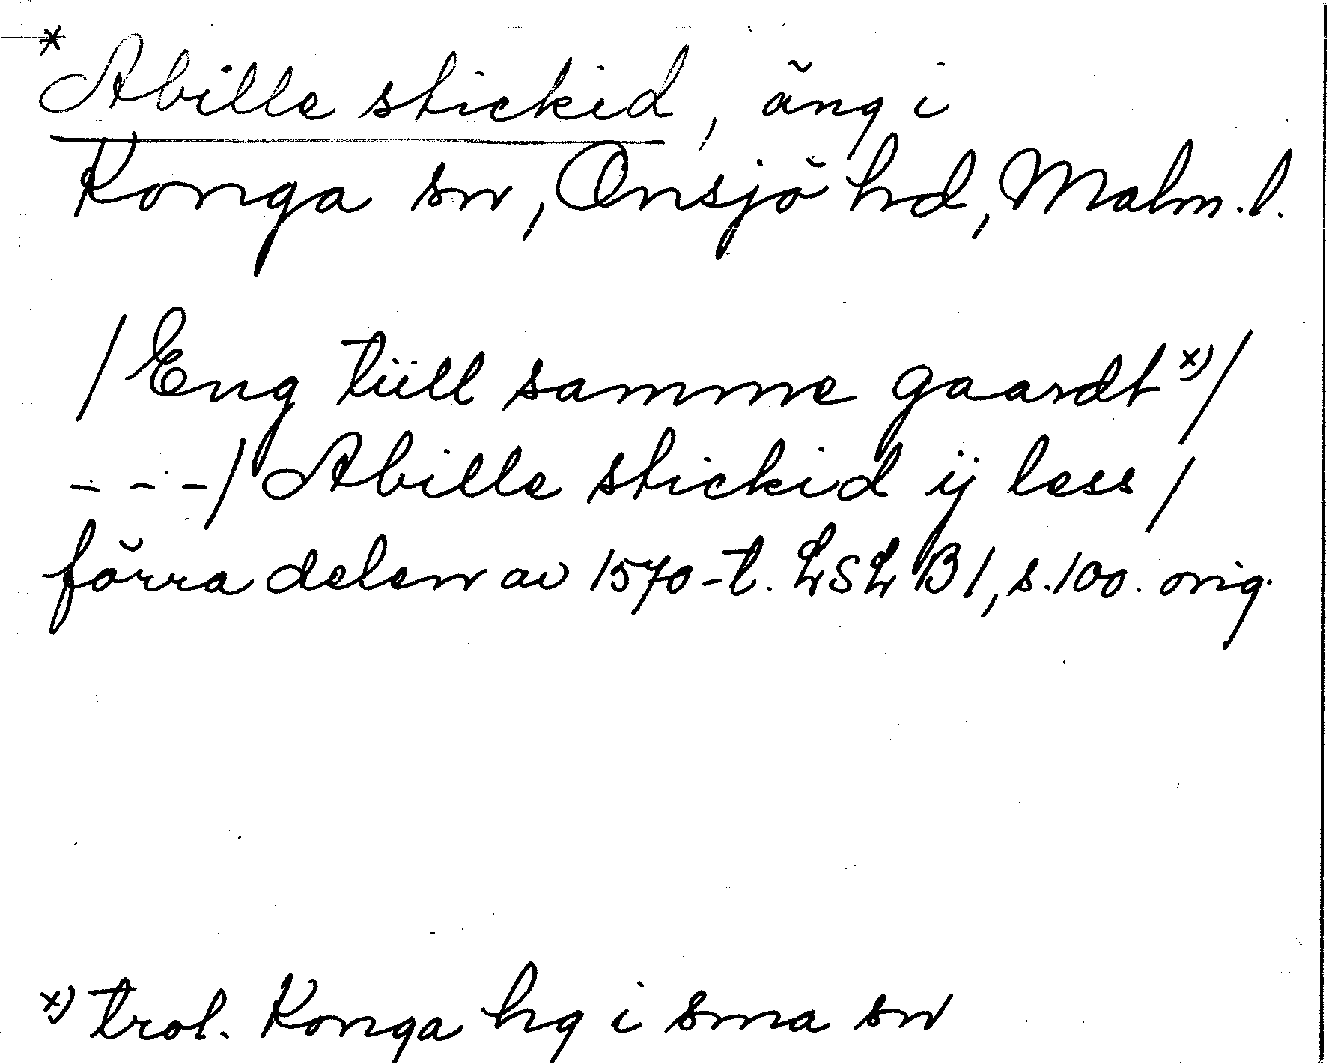 * Abille stickid, äng i
Konga sn, Onsjö hd, Malm. l.
/Eng tiill samme gaardt x)/
- - -/ Abille stickid ij less /
förra delen av 1570-t. LSL B1, s. 100. orig.
x) trol. Konga hg i sma sn